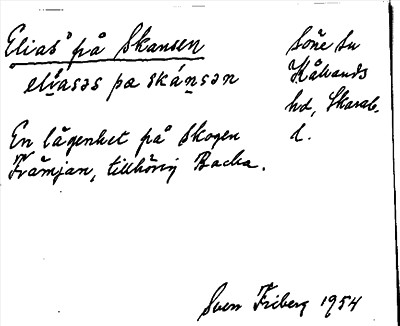 Elias' på Skansen
elíasəs pa skánsən
En lägenhet på Skogen
Främjan, tillhörig Backa.
Söne sn
Kållands
hd, Skarab.
l.
Sven Friberg 1954